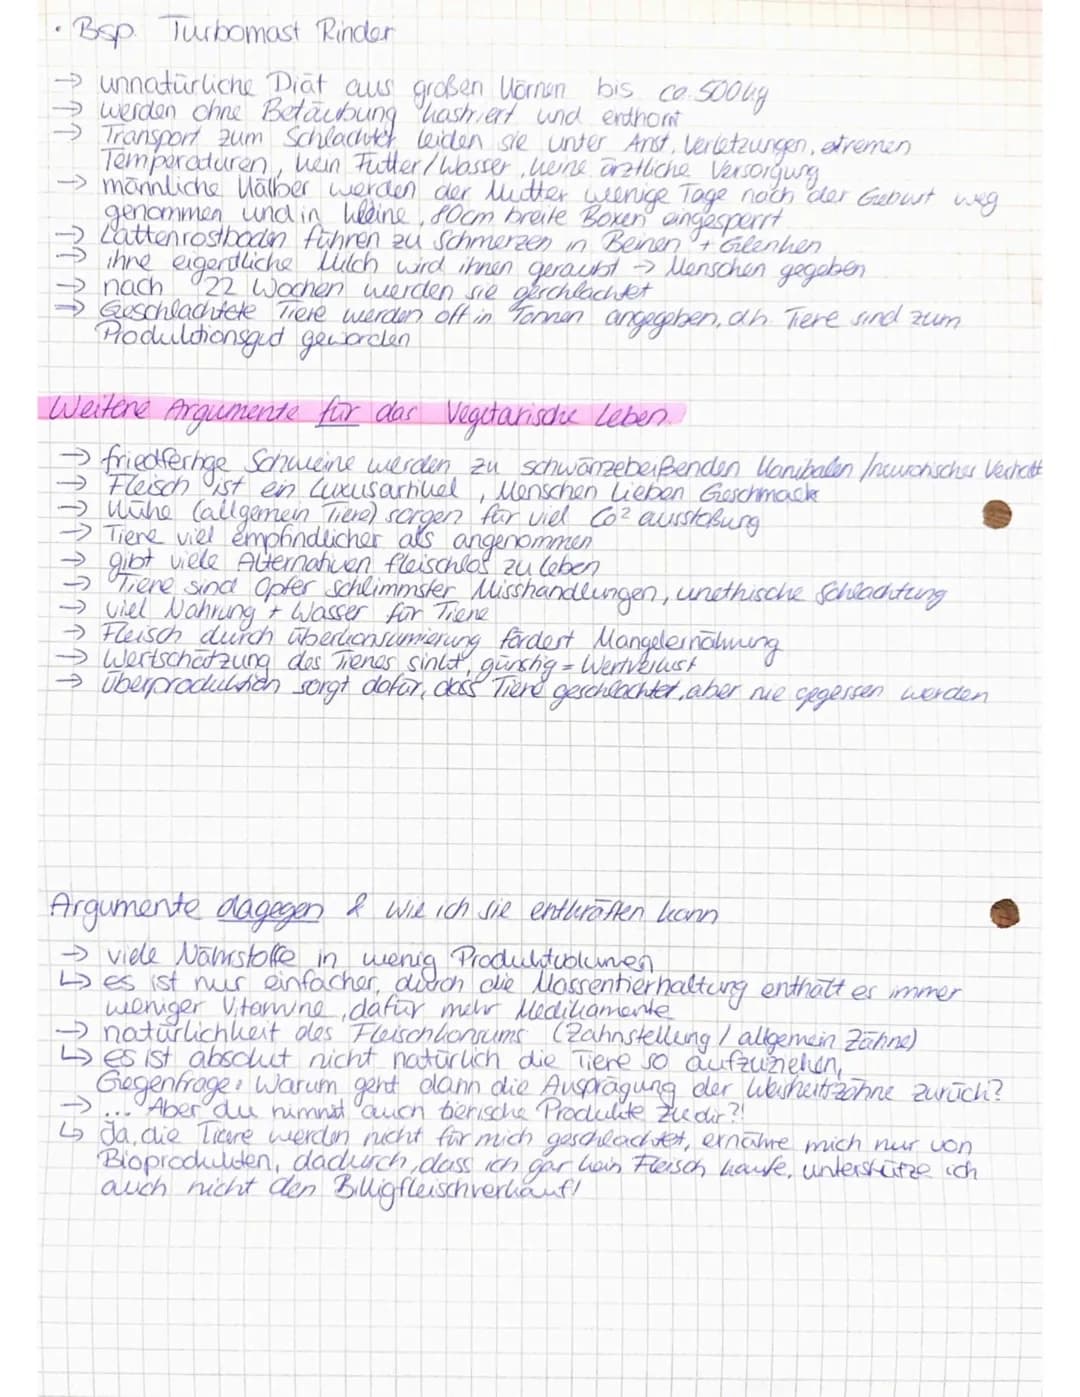 • Bsp. Turbomast Rinder
→ unnatürliche Diät aus großen Körnern bis ca. 500kg
→ werden ohne Betäubung kastriert und enthornt
→ Transport zum Schlachter leiden sie unter Anst, Verletzungen, etremen
Temperaturen, kein Futter/Wasser, keine ärztliche Versorgung
→ männliche Kälber werden der Mutter wenige Tage nach der Geburt weg
genommen und in kleine, 80cm breite Boxen eingesperrt
→ Lattenrostboden führen zu Schmerzen in Beinen + Glenken
→ ihre eigentliche Milch wird ihnen geraubt → Menschen gegeben
→ nach 22 Wochen werden sie geschlachtet
⇒ Geschlachtete Tiere werden oft in Tonnen angegeben, dh. Tiere sind zum
Produktionsgut geworden
Weitere Argumente für das Vegetarische Leben.
→ friedfertige Schweine werden zu schwänzebeißenden Kanibalen /neurotisches Verhalt
→ Fleisch ist ein Luxusartikel, Menschen lieben Geschmack
→ Kühe (allgemein Tiere) sorgen für viel Co² ausstoßung
→ Tiere viel empfindlicher als angenommen
→ gibt viele Alternativen fleischlos zu leben
→ Tiere sind Opfer schlimmster Misshandlungen, unethische Schlachtung
→ viel Nahrung + Wasser für Tiere
→ Fleisch durch überkonsumierung fördert Mangelernährung
→ Wertschätzung des Tieres sinkt, günstig = Wertverlust
→ Überproduktion sorgt dafür, dass Tiere geschlachtet, aber nie gegessen werden
Argumente dagegen & wie ich sie entkräften kann
→ viele Nährstoffe in wenig Produktvolumen
↳ es ist nur einfacher, durch die Massentierhaltung enthält es immer
weniger Vitamine, dafür mehr Medikamente
→ natürlichkeit des Fleischkonsums (Zahnstellung / allgemein Zähne)
↳ es ist absolut nicht natürlich die Tiere so aufzuziehen,
Gegenfrage: Warum geht dann die Ausprägung der Weisheitszähne zurück?
→ ... "Aber du nimmst auch tierische Produkte zu dir?!
↳ Ja, die Tiere werden nicht für mich geschlachtet, ernähre mich nur von
Bioprodukten, dadurch, dass ich gar kein Fleisch kaufe, unterstütze ich
auch nicht den Billigfleischverkauf!